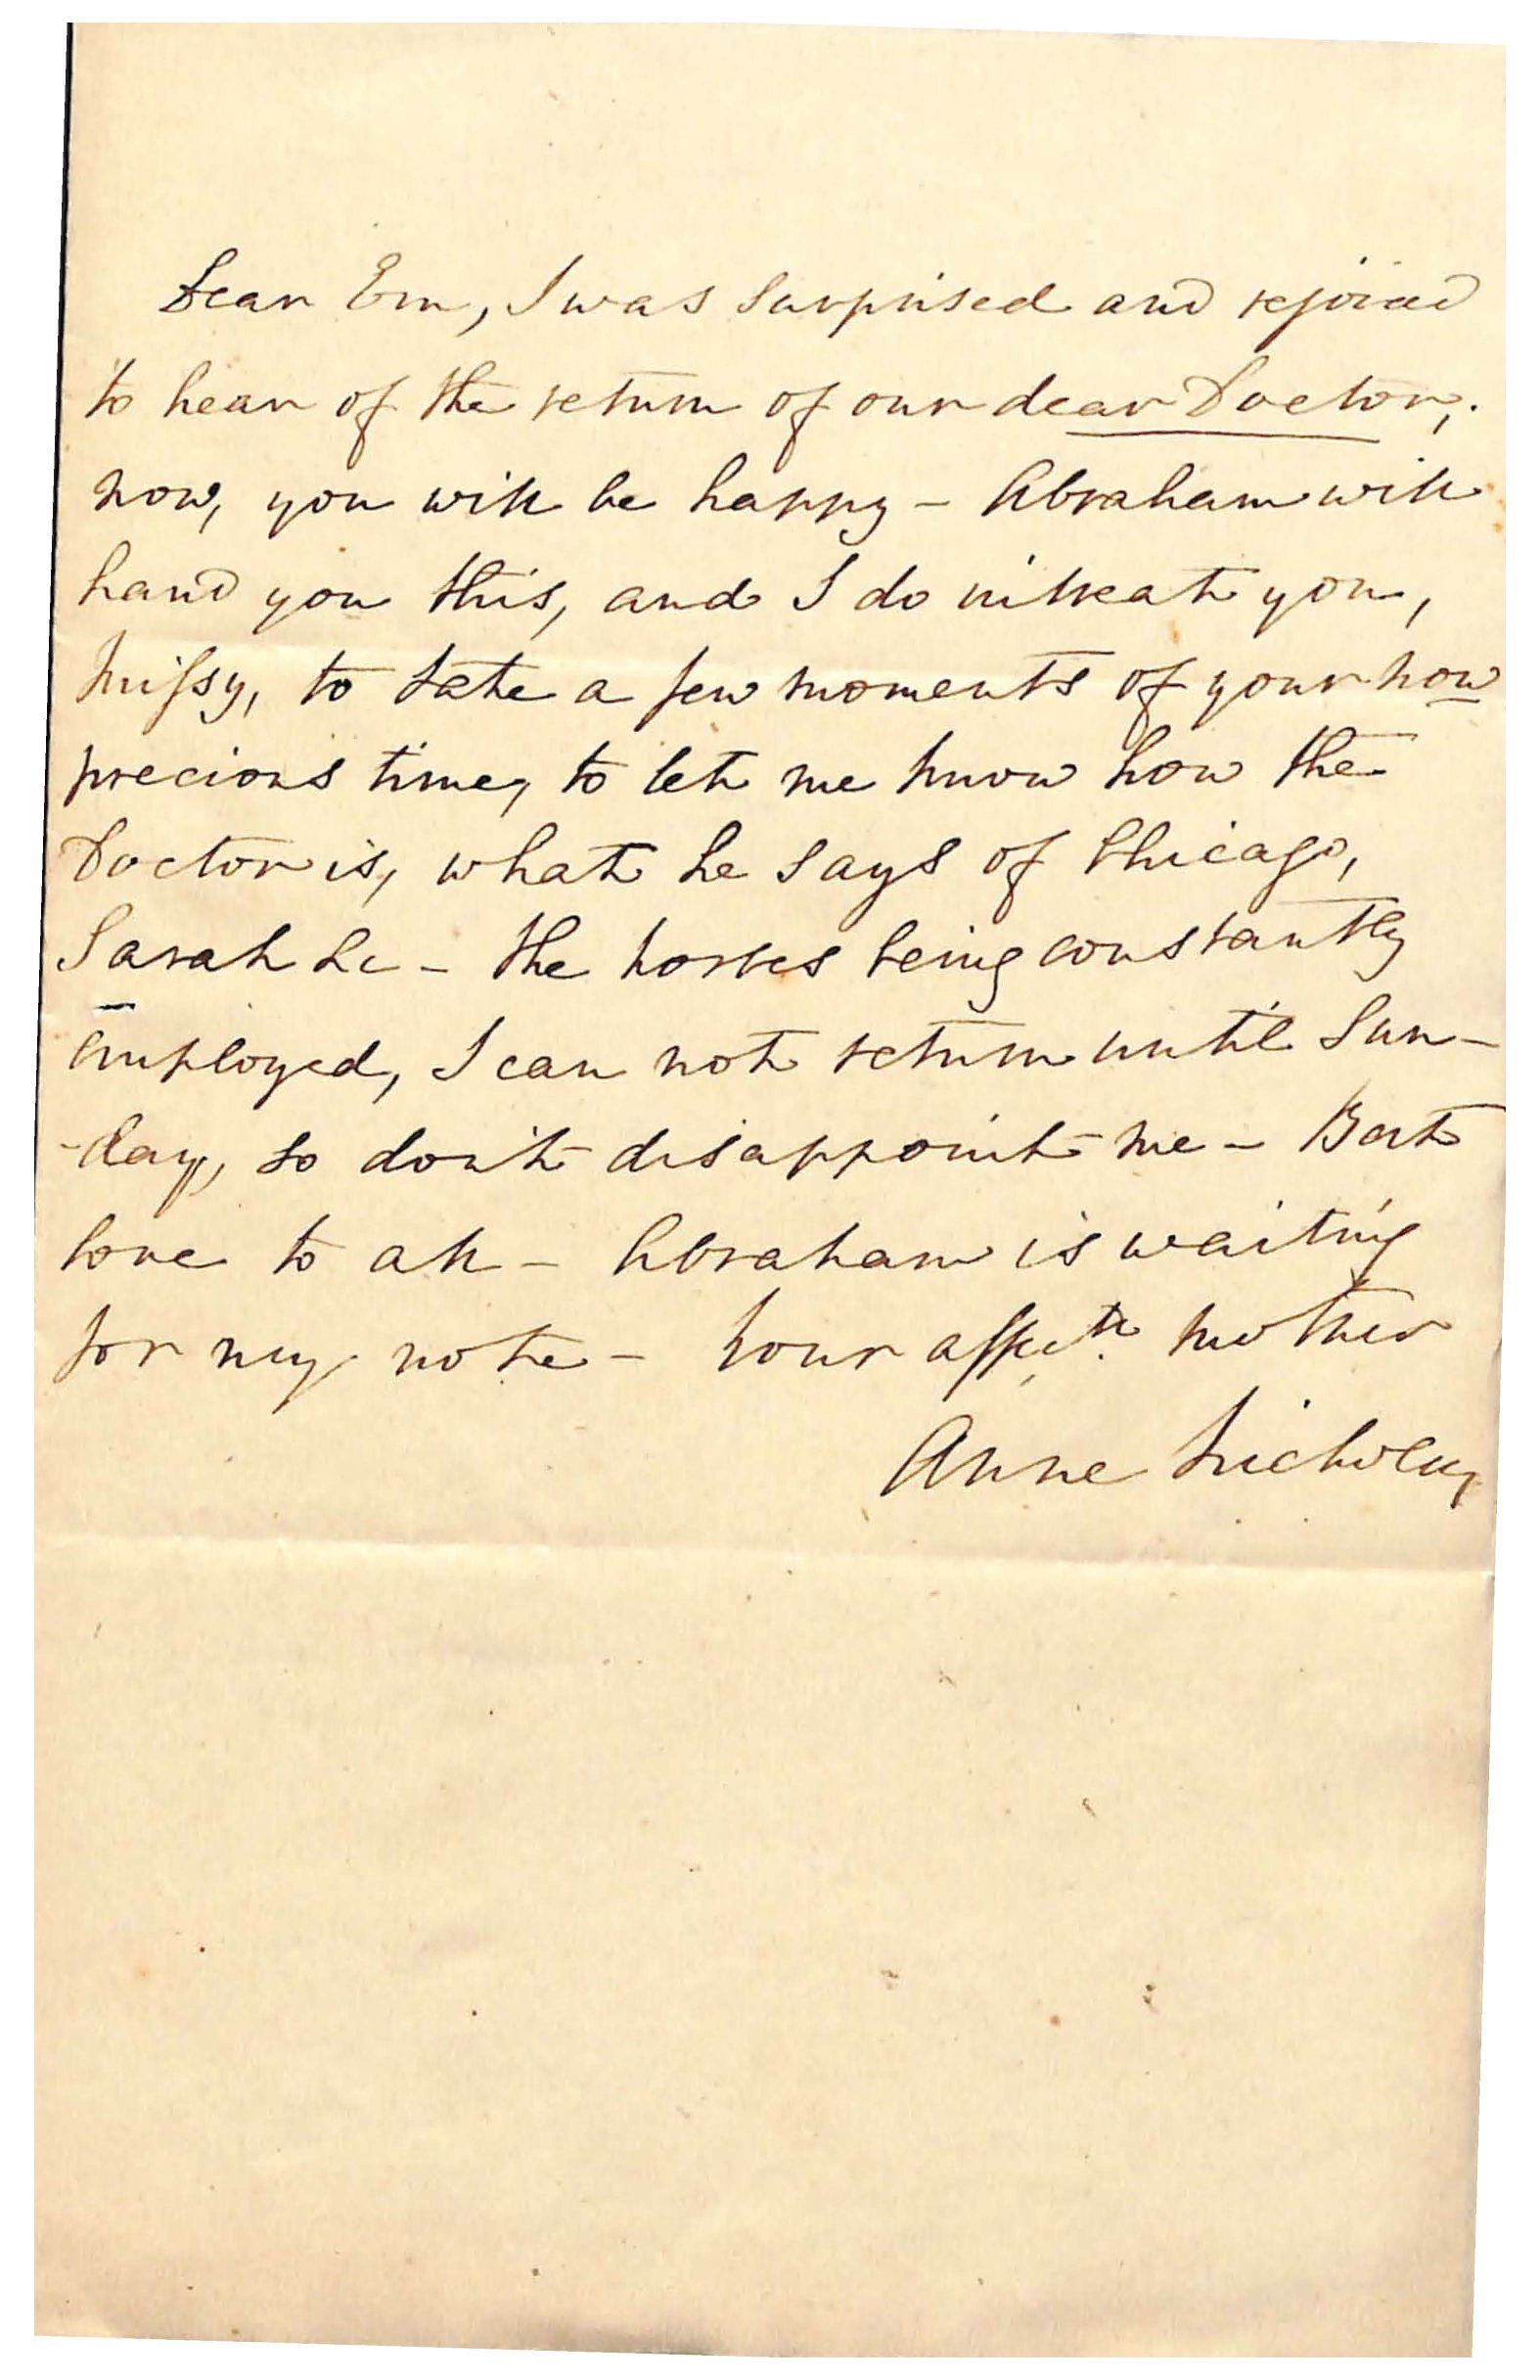 Dear Em, I was surprised and rejoiced
to hear of the return of our dear Doctor,
now, you will be happy - Abraham will
hand you this, and I do intreat you,
Missy, to take a few moments of your now
precious time, to let me know how the
Doctor is, what he says of Chicago,
Sarah &c - the horses being constantly
employed, I can not return until Sun-
-day, so don't disappoint me - Best
love to all - Abraham is waiting
for my note - Your affecte mother
Anne Nicholas